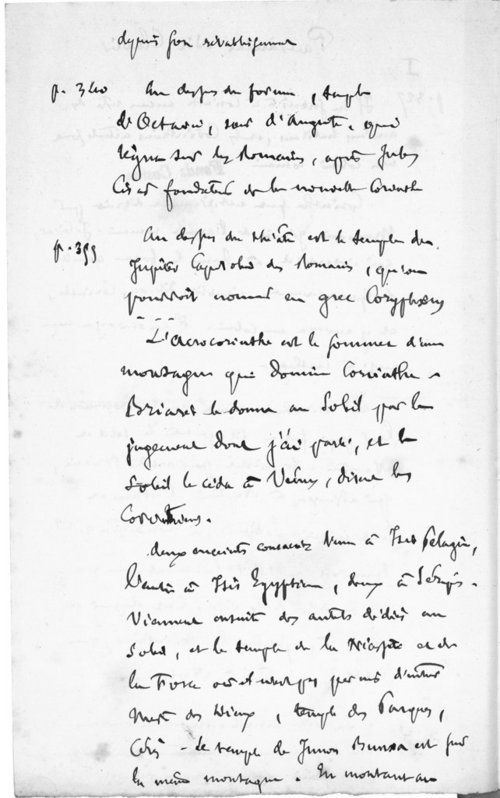 depuis son rétablissement
p. 340 Au dessus du forum, temple
de Octavie, sœur d'Auguste, qui
régna sur les Romains, après Jules
César fondateur de la nouvelle Corinthe
p. 355 Au dessus du théâtre est le temple de
Jupiter Capitolin des Romains, qu'on
pourroit nommer en grec Coryphœus
L'acrocorinthe est le sommet d'une
montagne qui domine Corinthe -
Briarée le donna au Soleil par le
jugement dont j'ai parlé, et le
Soleil le céda à Vénus, disent les
Corinthiens.
deux enceintes consacrées l'une à Isis Pélagie,
l'autre à Isis Egyptienne, deux à Sérapis.
Viennent ensuite des autels dédiés au
Soleil, et le temple de la Nécessité et de
la Force où il n'est pas permis d'entrer
Mère des Dieux, temple des Parques,
Cérès - Le temple de Junon Bunæa est sur
la même montagne. En montant au